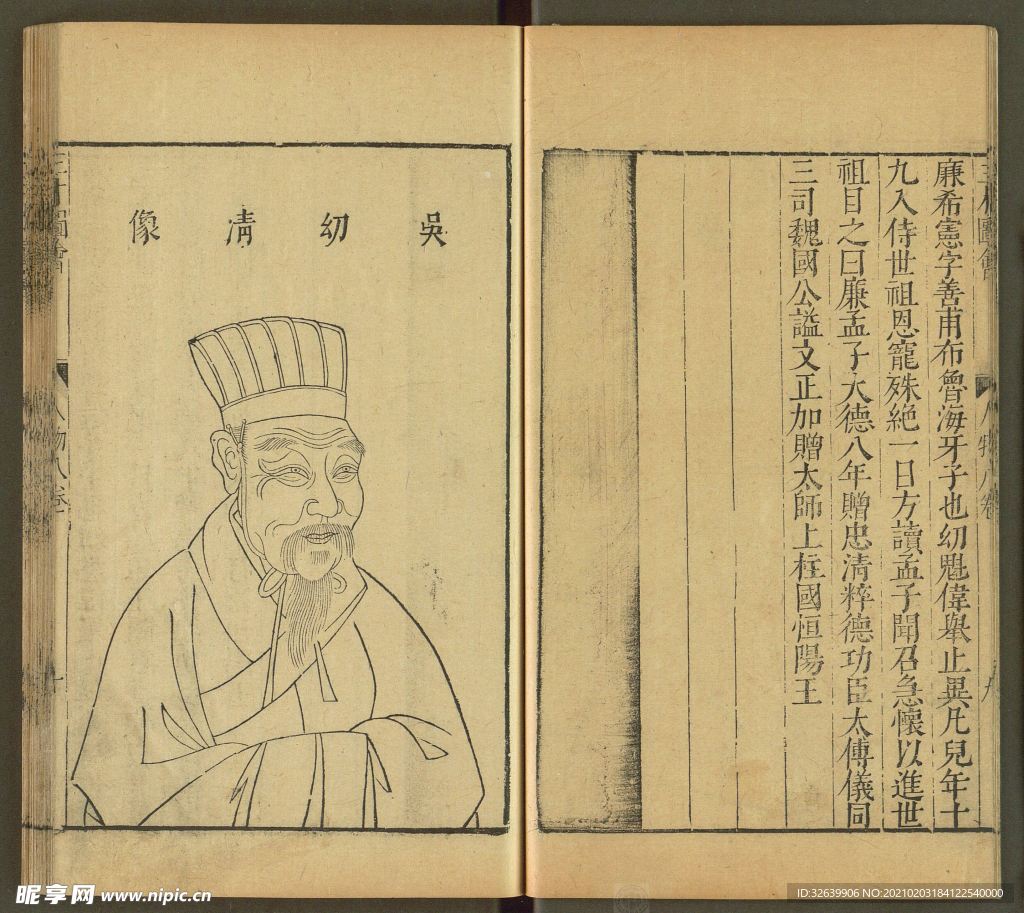 廉希憲字善甫布魯海牙子也幼魁偉舉止異凡兒年十
九入侍世祖恩寵殊絕一日方讀孟子聞召急懷以進世
祖目之曰廉孟子大德八年贈忠清粹德功臣太傅儀同
三司魏國公謚文正加贈太師上柱國恒陽王
吳幼清像
人物八卷
昵享网 www.nipic.cn
ID:32639906 NO:20210203184122540000